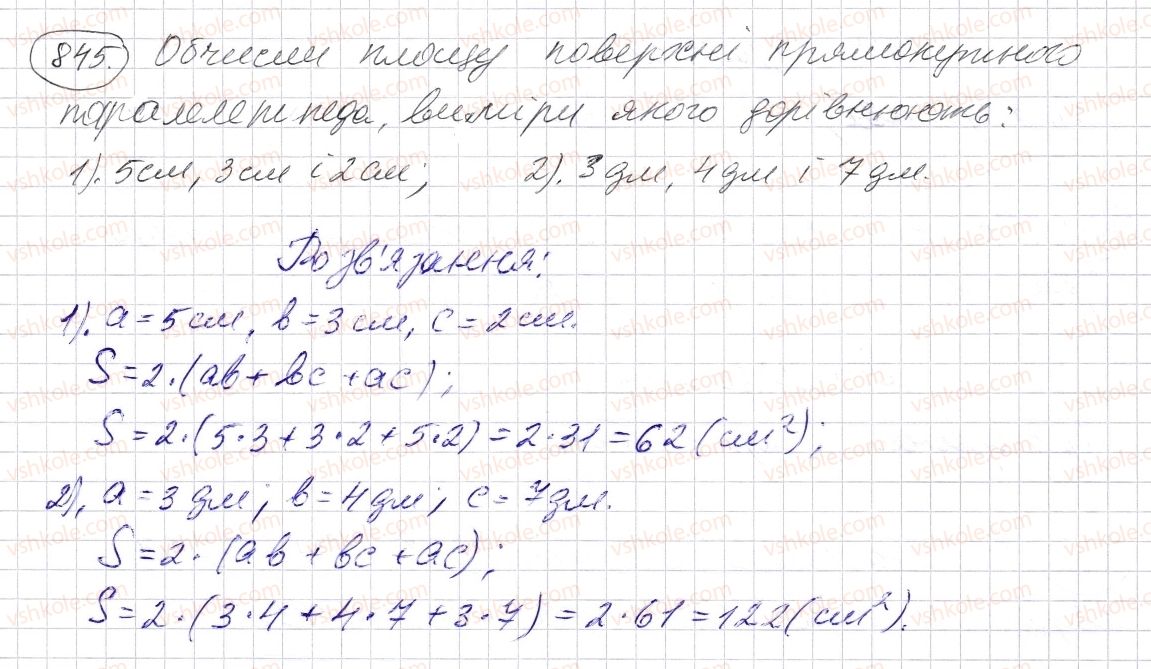 845. Обчисли площу поверхні прямокутного
паралелепіпеда, виміри якого дорівнюють:
1). 5см, 3см і 2см; 2). 3дм, 4дм і 7дм.
Розв'язання:
1). a = 5см, b = 3см, c = 2см.
S = 2·(ab + bc + ac);
S = 2·(5·3 + 3·2 + 5·2) = 2·31 = 62 (см²);
2). a = 3дм; b = 4дм; c = 7дм.
S = 2·(ab + bc + ac);
S = 2·(3·4 + 4·7 + 3·7) = 2·61 = 122 (см²).
vshkole.com